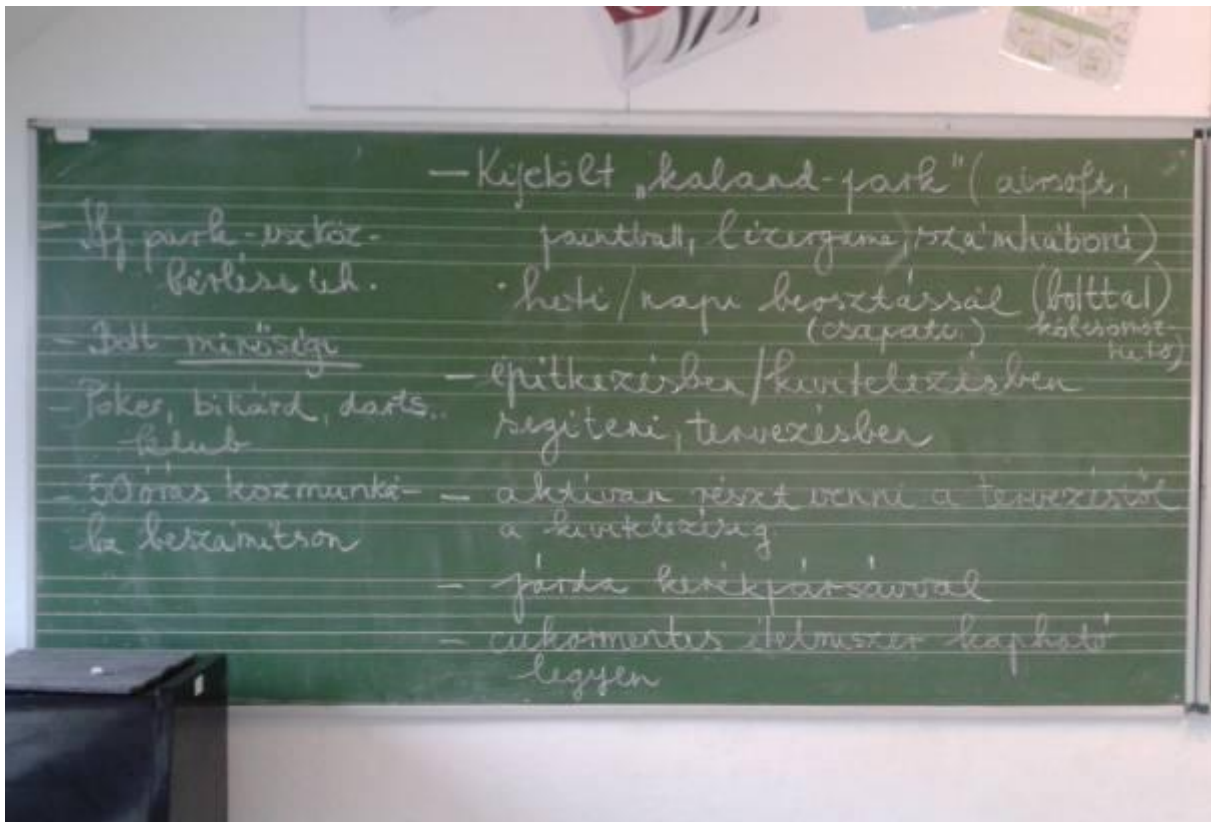 - Ifj park-eszköz-
bérlése ill.
- Bolt minőségi
- Póker, biliárd, darts..
klub
- 50 órás közmunká-
ba beszámítson
- Kijelölt "kaland-park" (airsoft,
paintball, lézergame, számháború)
· heti/napi beosztással (bolttal)
(csapato.) kölcsönöz-
hető)
- építkezésben/kivitelezésben
segíteni, tervezésben
- aktívan részt venni a tervezéstől
a kivitelezésig
- járda kerékpársávval
- cukormentes élelmiszer kapható
legyen